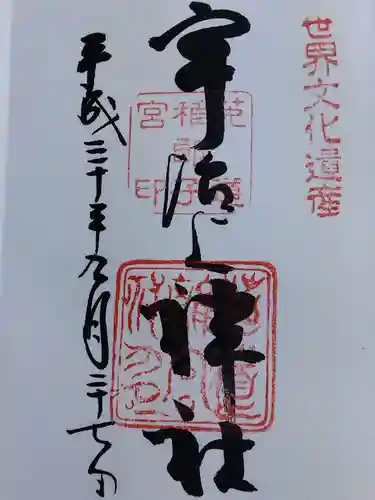 世界文化遺産
宇治上神社
平成三十年九月二十七日